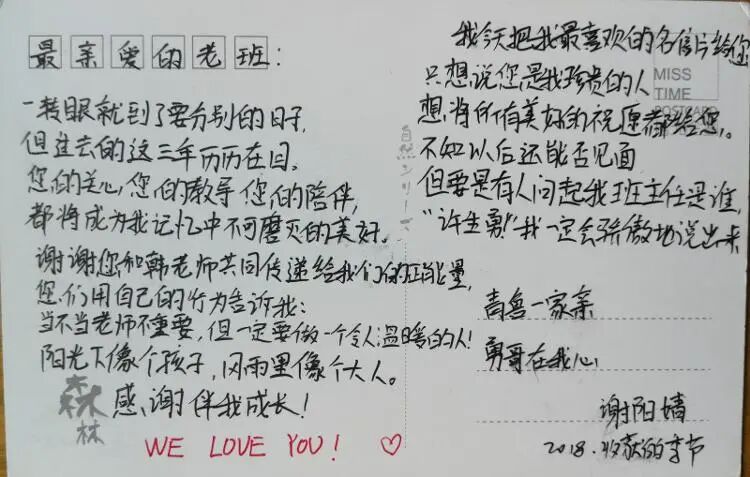 最亲爱的老班:
一转眼就到了要分别的日子,
但过去的这三年历历在目。
您的关心,您的教导 您的陪伴,
都将成为我记忆中不可磨灭的美好。
谢谢您和韩老师共同传递给我们的正能量,
您们用自己的行为告诉我:
当不当老师不重要,但一定要做一个令人温暖的人!
阳光下像个孩子,风雨里像个大人。
感谢伴我成长!
WE LOVE YOU! ♡
森
林
自然シリーズ
我今天把我最喜欢的名信片给您
只想说您是我珍贵的人
想将所有美好的祝愿都给您,。
不知以后还能否见面
但要是有人问起我班主任是谁,
“许生勇”我一定会骄傲地说出来
MISS
TIME
POSTCARD
青兽一家亲
勇哥在我心
谢阳婧
2018.收获的季节